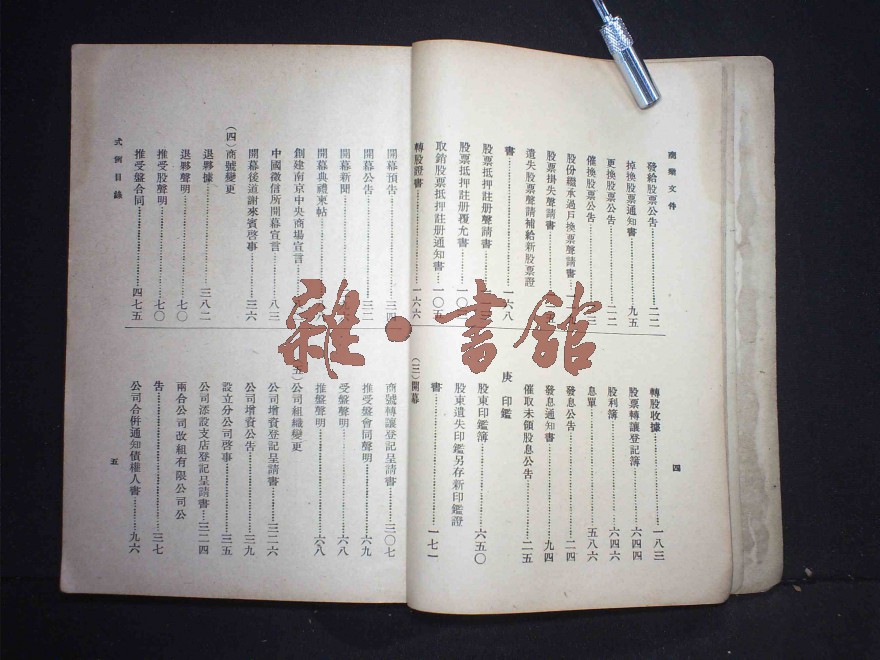 商業文件
發給股票公告……二二
掉換股票通知書……九五
更換股票公告……二二
催換股票公告……三
股份繼承過戶換票聲請書
股票掛失聲請書
遺失股票聲請補給新股票證
書……一六八
股票抵押註册聲請書
股票抵押註册覆允書……一〇
取銷股票抵押註册通知書……一〇五
轉股證書……一六六
轉股收據……一八三
股票轉讓登記簿……六四四
股利簿……六四六
息單……五八六
發息公告……二四
發息通知書……九四
催取未領股息公告……二五
庚 印鑑
股東印鑑簿……六五〇
股東遺失印鑑另存新印鑑證
書……一七一
(三)開幕
四
開幕預告……三四
開幕公告……三二
開幕新聞
開幕典禮柬帖
創建南京中央商場宣言
中國徵信所開幕宣言……八三
開幕後道謝來賓啓事……三六
(四)商號變更
退夥據……三八二
退夥聲明……七〇
推受股聲明……七〇
推受盤合同……四七五
商號轉讓登記呈請書……三〇七
推受盤會同聲明……六九
受盤聲明……六八
推盤聲明……六八
(五)公司組織變更
公司增資登記呈請書……三二六
公司增資公告……三九
設立分公司啓事……三五
公司添設支店登記呈請書……三二四
兩合公司改組有限公司公
告……三七
公司合併通知債權人書……九六
式例目錄
五
雜·書館